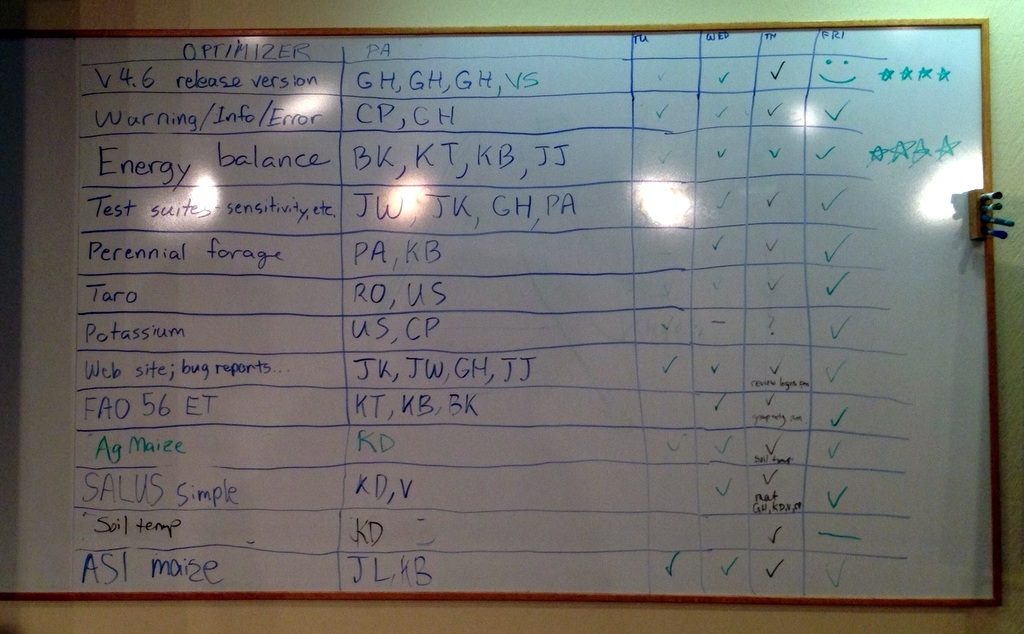 OPTIMIZER PA TU WED TH FRI
V 4.6 release version GH, GH, GH, VS ✓ ✓ ✓
Warning/Info/Error CP, CH ✓ ✓ ✓ ✓
Energy balance BK, KT, KB, JJ ✓ ✓ ✓ ✓
Test suites - sensitivity, etc. JW, JK, GH, PA ✓ ✓ ✓
Perennial forage PA, KB ✓ ✓ ✓
Taro RO, US ✓ ✓ ✓ ✓
Potassium US, CP ✓ – ? ✓
Web site; bug reports... JK, JW, GH, JJ ✓ ✓ ✓ ✓
review
FAO 56 ET KT, KB, BK ✓ ✓ ✓
Ag Maize KD ✓ ✓ ✓ ✓
Soil temp
SALUS Simple KD, V ✓ ✓ ✓
GH, KD, V,
Soil temp KD ✓ —
ASI maize JL, KB ✓ ✓ ✓ ✓